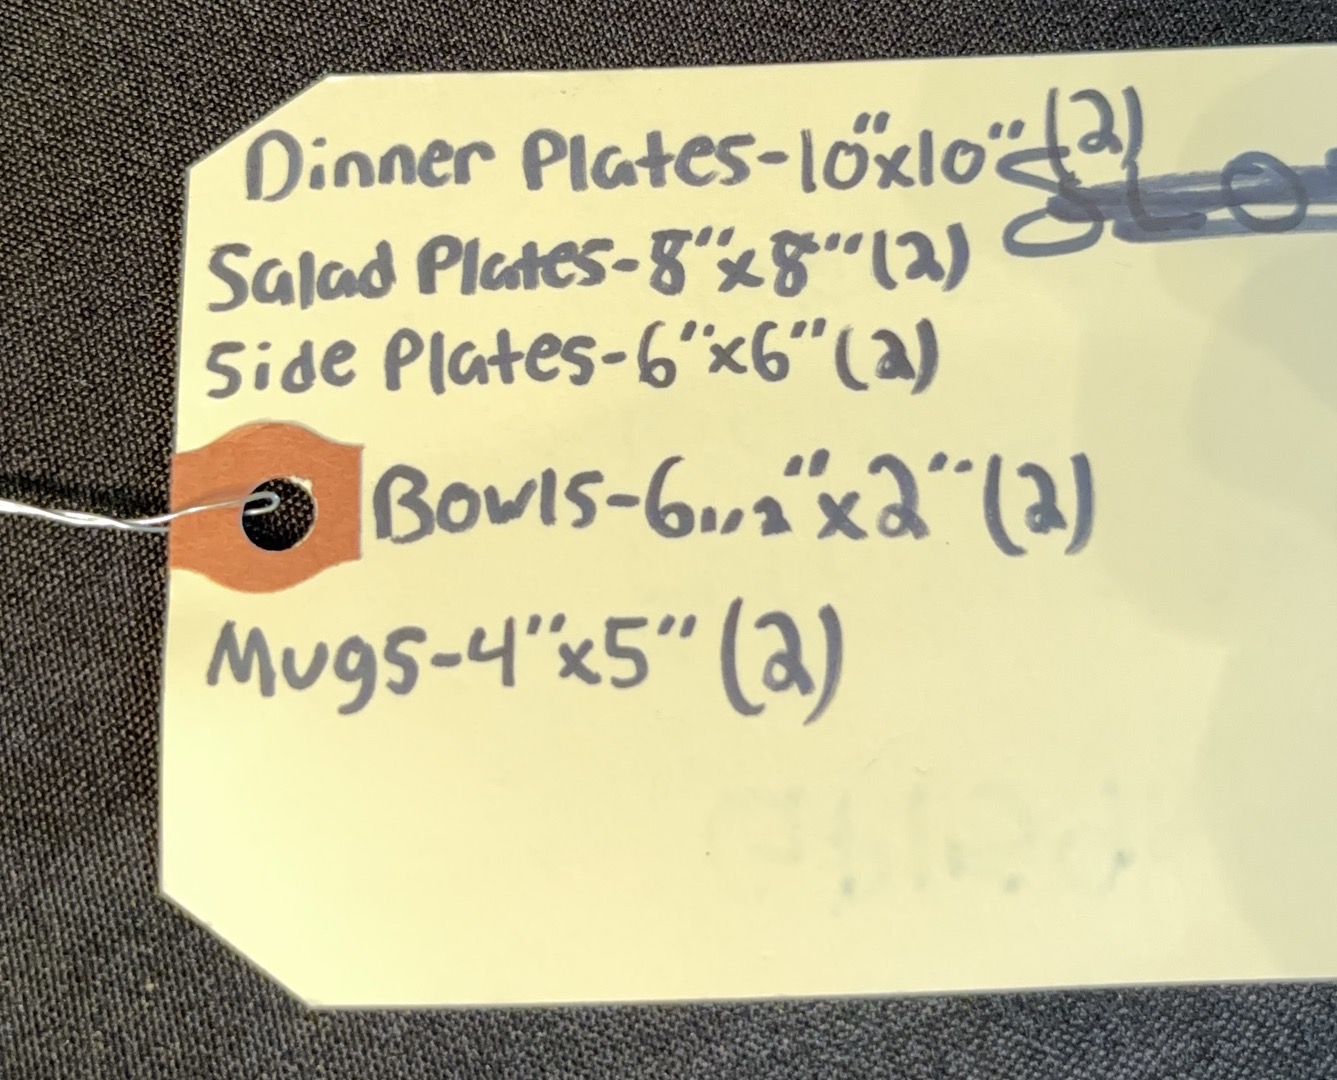 Dinner Plates-10"x10" (2)
Salad Plates-8"x8" (2)
Side Plates-6"x6" (2)
Bowls-6 1/2"x2" (2)
Mugs-4"x5" (2)